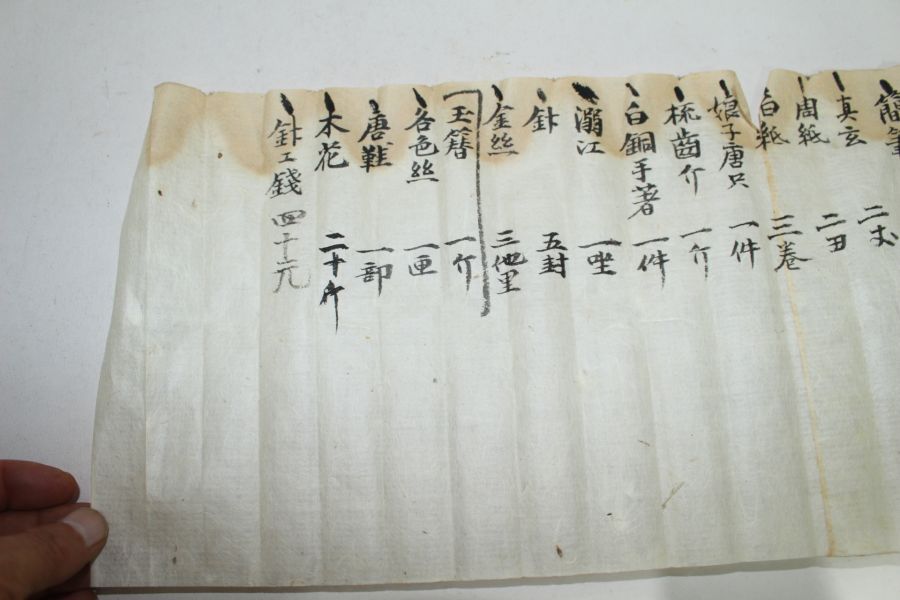 簡筆 二丈
真玄 二丑
周紙
白紙 三卷
娘子唐只 一件
梳齒介 一介
白銅手著 一件
溺江 一坐
針 五封
金絲 三他里
玉簪 一介
各色絲 一匣
唐鞋 一部
木花 二十斤
針工錢 四十元